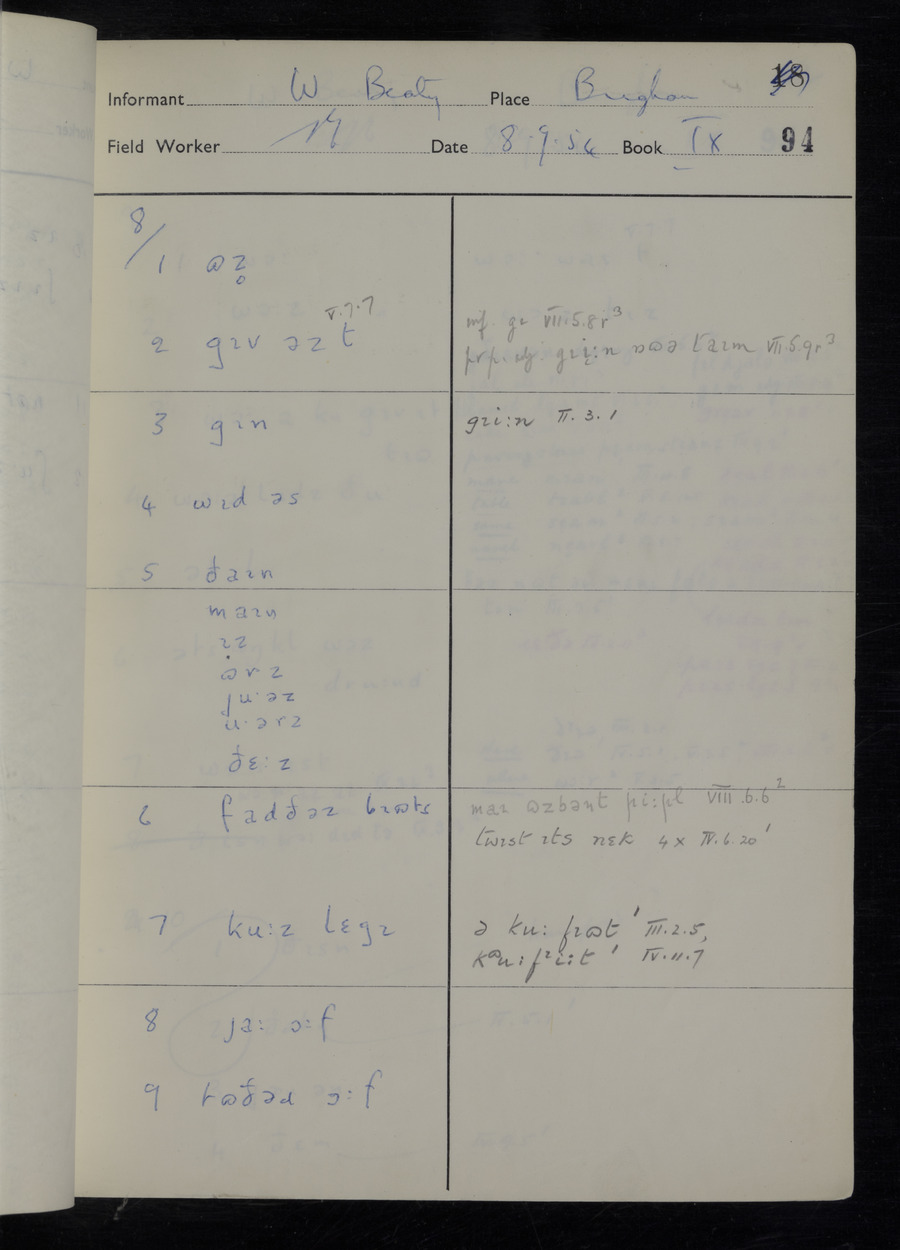 Informant W Beaty Place Brigham 18
Field Worker Date 8.9.54 Book IX 94
8/
1 ɷz̥
V.7.7
2 gɪv əz t
mf. gɪ VIII.5.8r³
gɪi:n ðɷə taɪm VII.5.9r³
3 gɪn
gɪi:n II.3.1
4 wɪð əs
5 ðaɪn
maɪn
ɪz
ɷrz
ju·əz
u·ərz
ðɛ:z
6 faððəz brɷts
maɪ ɷzbənt pi:pl VIII.6.6²
twɪst ɪts nɛk 4x IV.6.20ˈ
7 ku:z lɛgz
ə ku: fɪɷt ˈ III.2.5,
ku:fɪi:t ˈ IV.11.7
8 ja: ɔ:f
9 tɷðəɹ ɔ:f